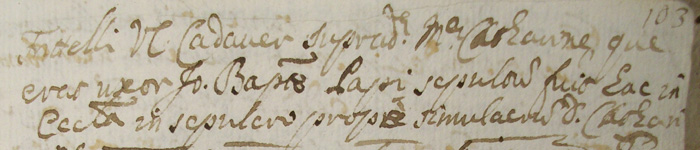 103
Fratelli Vt Cadauer supradte. Mæ Catharinæ que
erat uxor Jo. Baptæ Lapi sepultũ fuit hac in
Eccla in sepulcro propè simulacrũ S. Cathari